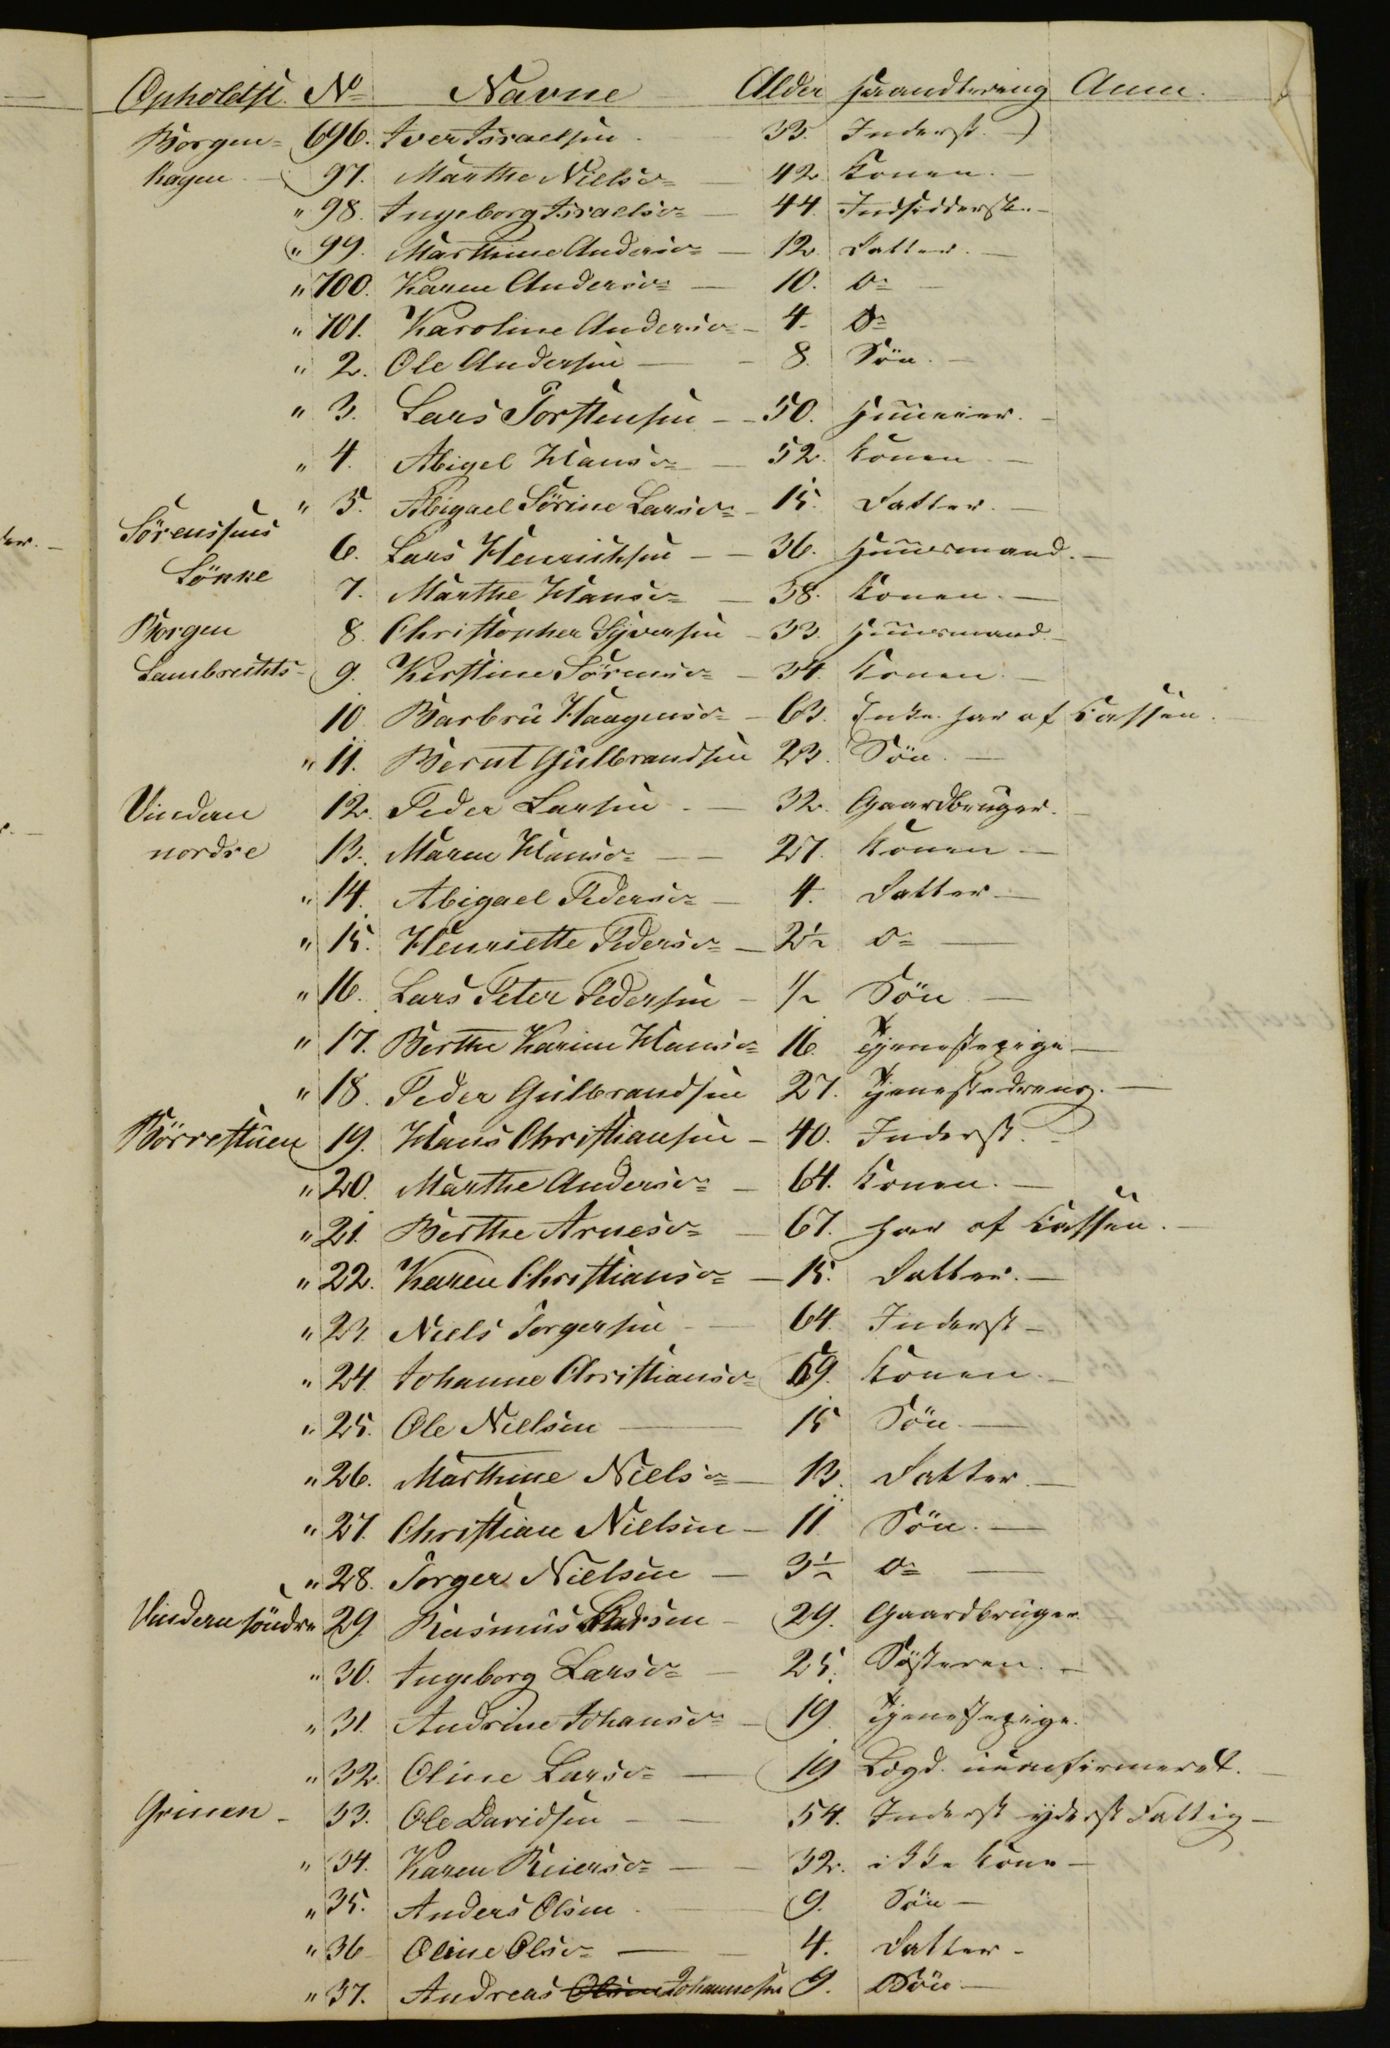 Opholdst. No Navne Alder Haandtering Anm.
Borgen= 696. Iver Israelsen. 33. Inderst.
hagen - 97. Marthe Nielsd= - 42 Konen. -
" 98. Ingeborg Israelsd= - 44. Indsidderske. -
" 99. Marthine Andersd= - 12 Datter. -
" 700. Karen Andersd= - 10. do -
" 701. Karoline Andersd= - 4. Do
" 2. Ole Andersen - 8. Sön. -
" 3. Lars Torstensen - 50. Huuseier. -
" 4. Abigel Hansd= - 52. Konen -
" 5. Abigael Sörine Larsd= - 15. Datter. -
Sörenssens 6. Lars Henrichsen - 36. Huusmand. -
Lökke 7. Marthe Hansd= - 38. Konen. -
Borgen 8. Christopher Syversen - 33. Huusmand -
Lambrechts - 9. Kirstine Sörensd= - 34. Konen. -
10 Barbru Haagensd= - 63. Enke. har af Kassen. -
" 11. Bernt Gulbrandsen 23. Sön. -
Vindern 12. Peder Larsen - 32. Gaardbruger. -
nordre 13. Maren Hansd= - 27. Konen -
" 14. Abigael Pedersd= - 4. Datter -
" 15. Henriette Pedersd= - 2½ do -
" 16. Lars Peter Pedersen - ½ Sön -
" 17. Berthe Karine Hansd= 16. Tjenestepige -
" 18. Peder Gulbrandsen 27. Tjenestedreng. -
Börrestuen 19. Hans Christiansen - 40. Inderst. -
" 20. Marthe Andersd= - 64. Konen. -
" 21. Berthe Arnesd= - 67. har af Kassen. -
" 22. Karen Christiansd= - 15. Datter. -
" 23. Niels Torgersen - 64. Inderst -
" 24. Johanne Christiansd= 59. Konen. -
" 25. Ole Nielsen - 15 Sön -
" 26. Marthine Nielsd= - 13. Datter. -
" 27. Christian Nielsen - 11 Sön. -
" 28. Torger Nielsen - 3½ do -
Vindern söndre 29. Rasmus Larsen - 29. Gaardbruger
" 30. Ingeborg Larsd= - 25. Søsteren. -
" 31. Andrine Johansd= - 19. Tjenestepige.
" 32. Oline Larsd= - 19 Lægd. uconfirmeret. -
Grinien - 33. Ole Davidsen - 54. Inderst yderst Fattig -
" 34. Karen Reiersd= - 32. ikke Kone -
" 35. Anders Olsen - 9. Sön -
" 36 - Oline Olsd= - 4. Datter -
" 37. Andreas Olsen Johannesen 9. Sön -